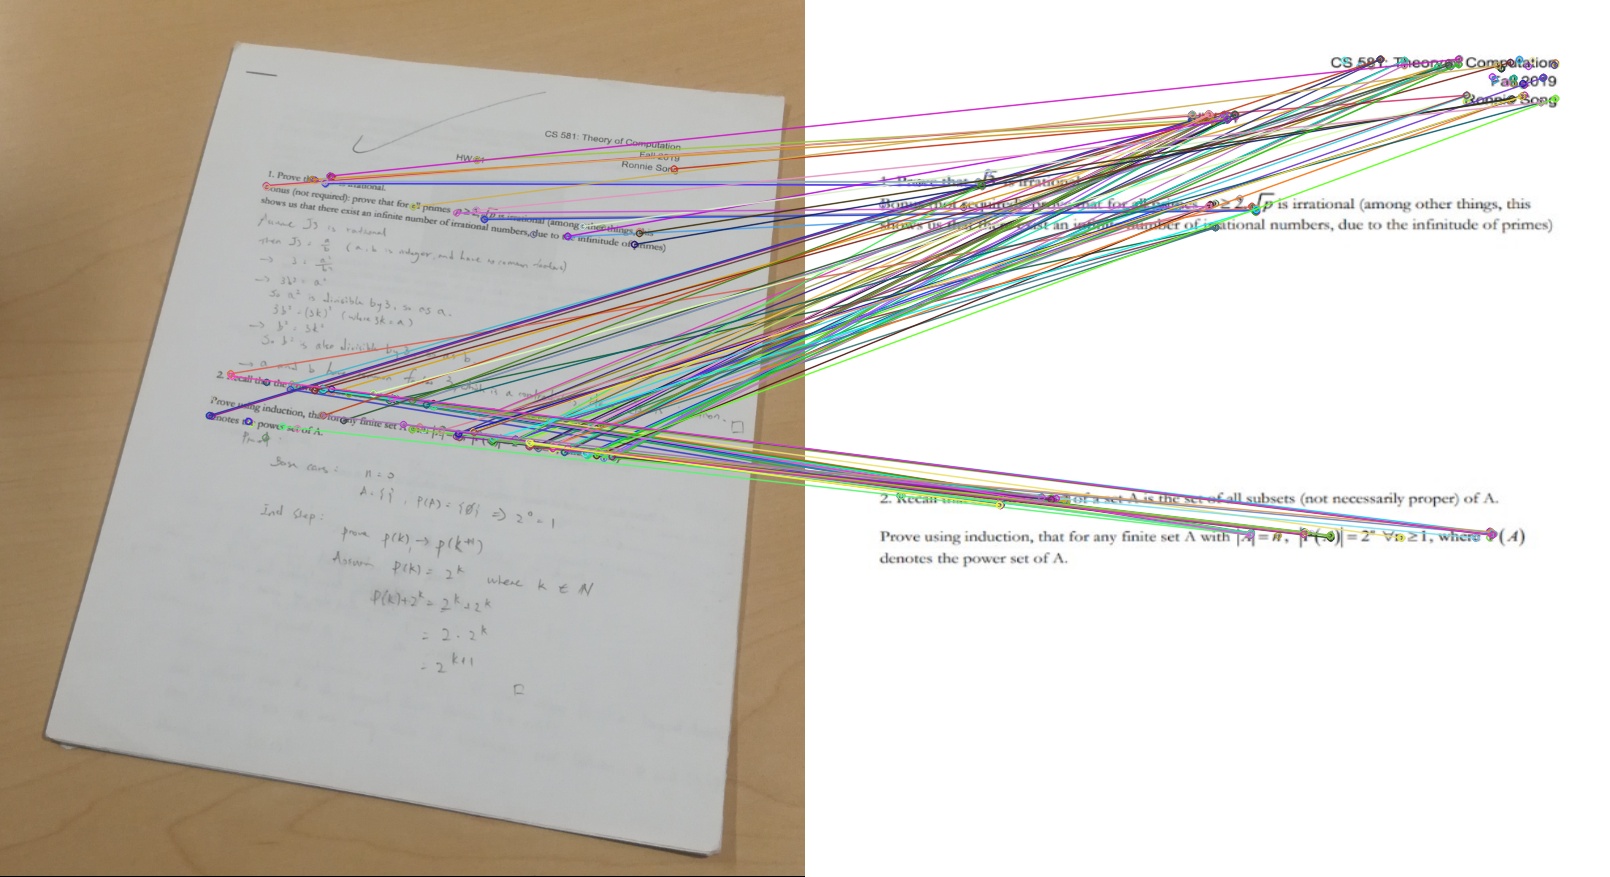 CS 581: Theory of Computation
Fall 2019
HW #1
Ronnie Song
1. Prove that is irrational.
Bonus (not required): prove that for all primes p ≥ 2, √p is irrational (among other things, this
shows us that there exist an infinite number of irrational numbers, due to the infinitude of primes)
Assume √3 is rational
then √3 = a/b (a, b is integer, and have no common factors)
→ 3 = a²/b²
→ 3b² = a²
So a² is divisible by 3, so as a.
3b² = (3k)² (where 3k = a)
→ b² = 3k²
So b² is also divisible by 3, so as b
→ a and b have common factor 3, which is a contradiction.
□
2. Recall that the
Prove using induction, that for any finite set A
denotes the power set of A.
Proof:
Base case: n = 0
A = { }, P(A) = {∅} ⇒ 2⁰ = 1
Ind step:
prove p(k) → p(k+1)
Assume P(k) = 2^k where k ∈ N
P(k)+2^k = 2^k + 2^k
= 2 · 2^k
= 2^k+1
□
CS 581: Theory of Computation
Fall 2019
Ronnie Song
1. Prove that √3 is irrational.
Bonus (not required): prove that for all primes p ≥ 2, √p is irrational (among other things, this
shows us that there exist an infinite number of irrational numbers, due to the infinitude of primes)
2. Recall that of a set A is the set of all subsets (not necessarily proper) of A.
Prove using induction, that for any finite set A with |A| = n, |P(A)| = 2ⁿ ∀n ≥ 1, where P(A)
denotes the power set of A.